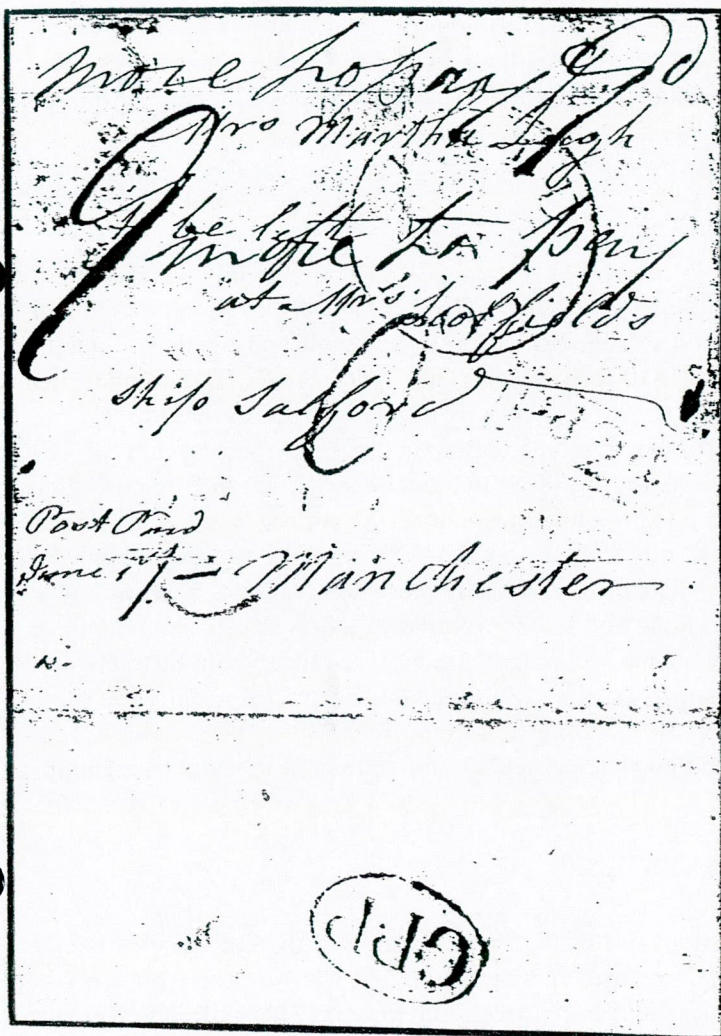 more to pay 9d
Mrs Martha Leigh
9
to be left
more to pay
at Mrs Scoffield's
Ship Salford
Post Paid
1/- Manchester
GPP